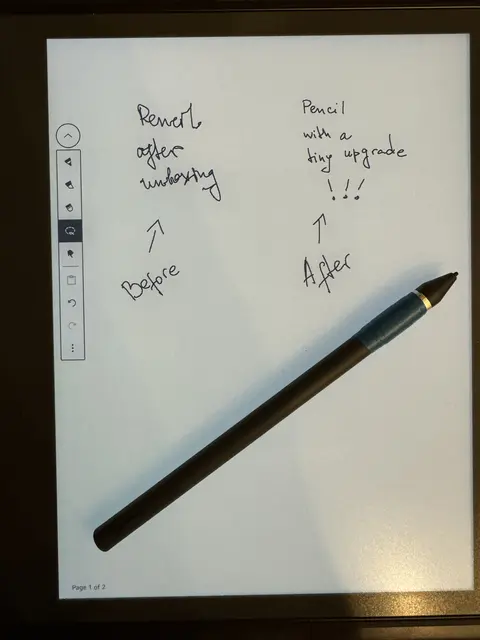 after
unboxing
Before
Pencil
with a
tiny upgrade
!!!
After
Page 1 of 2